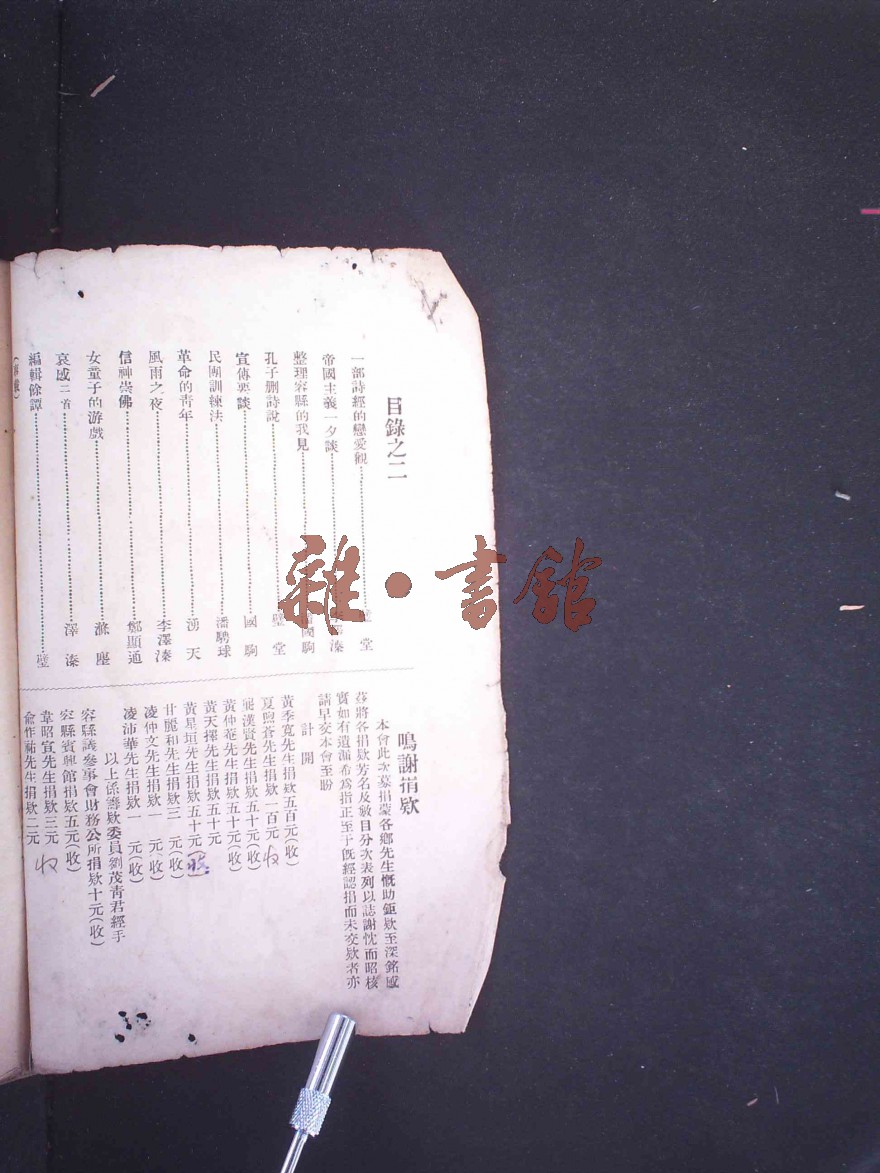 目錄之二
一部詩經的戀愛觀 堂
帝國主義一夕談 澤溱
整理容縣的我見 國駒
孔子刪詩說 璧堂
宣傳要談 國駒
民團訓練法 潘騁球
革命的青年 湧天
風雨之夜 李澤溱
信神崇佛 鄭顯通
女童子的游戲 滌塵
哀感二首 澤溱
編輯餘譚 璧
鳴謝捐欵
本會此次募捐蒙各鄉先生慨助鉅欵至深銘感
茲將各捐欵芳名及數目分次表列以誌謝忱而昭核
實如有遺漏希爲指正至于旣經認捐而未交欵者亦
請早交本會至盼
計開
黃季寬先生捐欵五百元(收)
夏煦蒼先生捐欵一百元 收
漢賢先生捐欵五十元(收)
黃仲菴先生捐欵五十元(收)
黃天擇先生捐欵五十元
黃星垣先生捐欵五十元
甘麗和先生捐欵三元(收)
凌仲文先生捐欵一元(收)
凌沛華先生捐欵一元(收)
以上係籌欵委員劉茂青君經手
容縣議參事會財務公所捐欵十元(收)
容縣賓興館捐欵五元(收)
韋昭宣先生捐欵三元 收
俞作祐先生捐欵二元
雜·書館